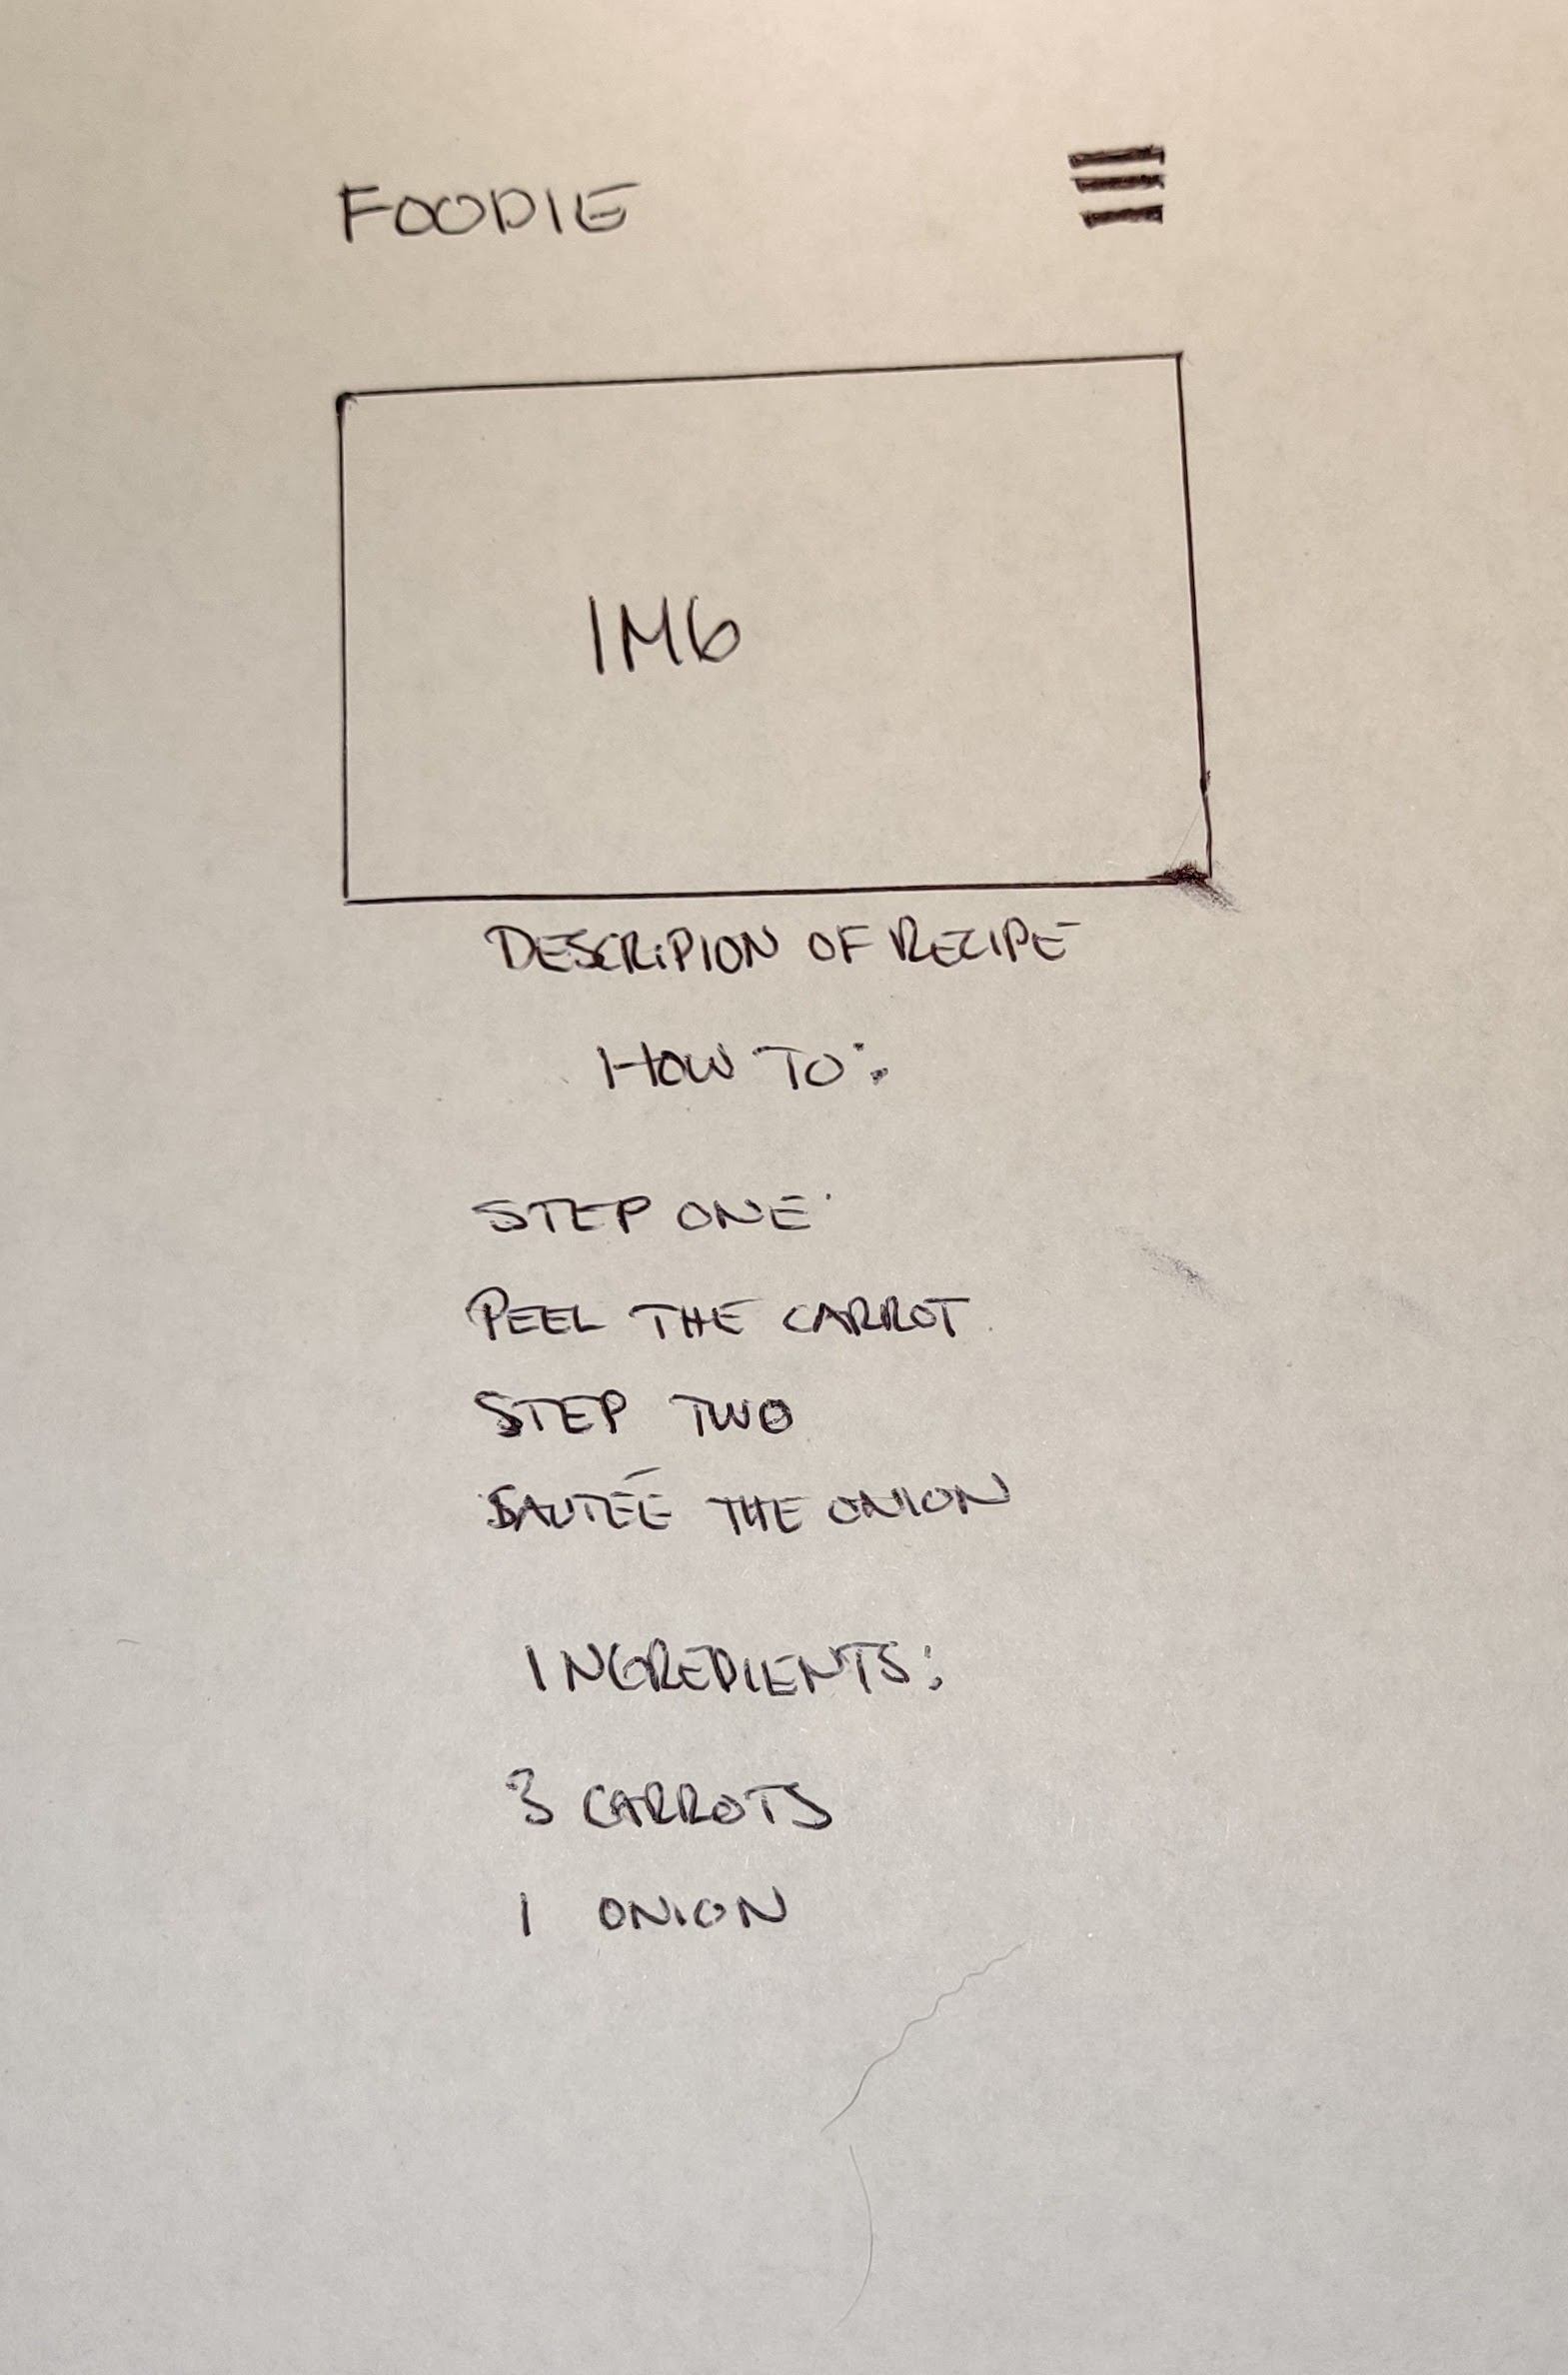 FOODIE
IMG
DESCRIPION OF RECIPE
HOW TO:
STEP ONE
PEEL THE CARROT
STEP TWO
SAUTÉE THE ONION
INGREDIENTS:
3 CARROTS
1 ONION